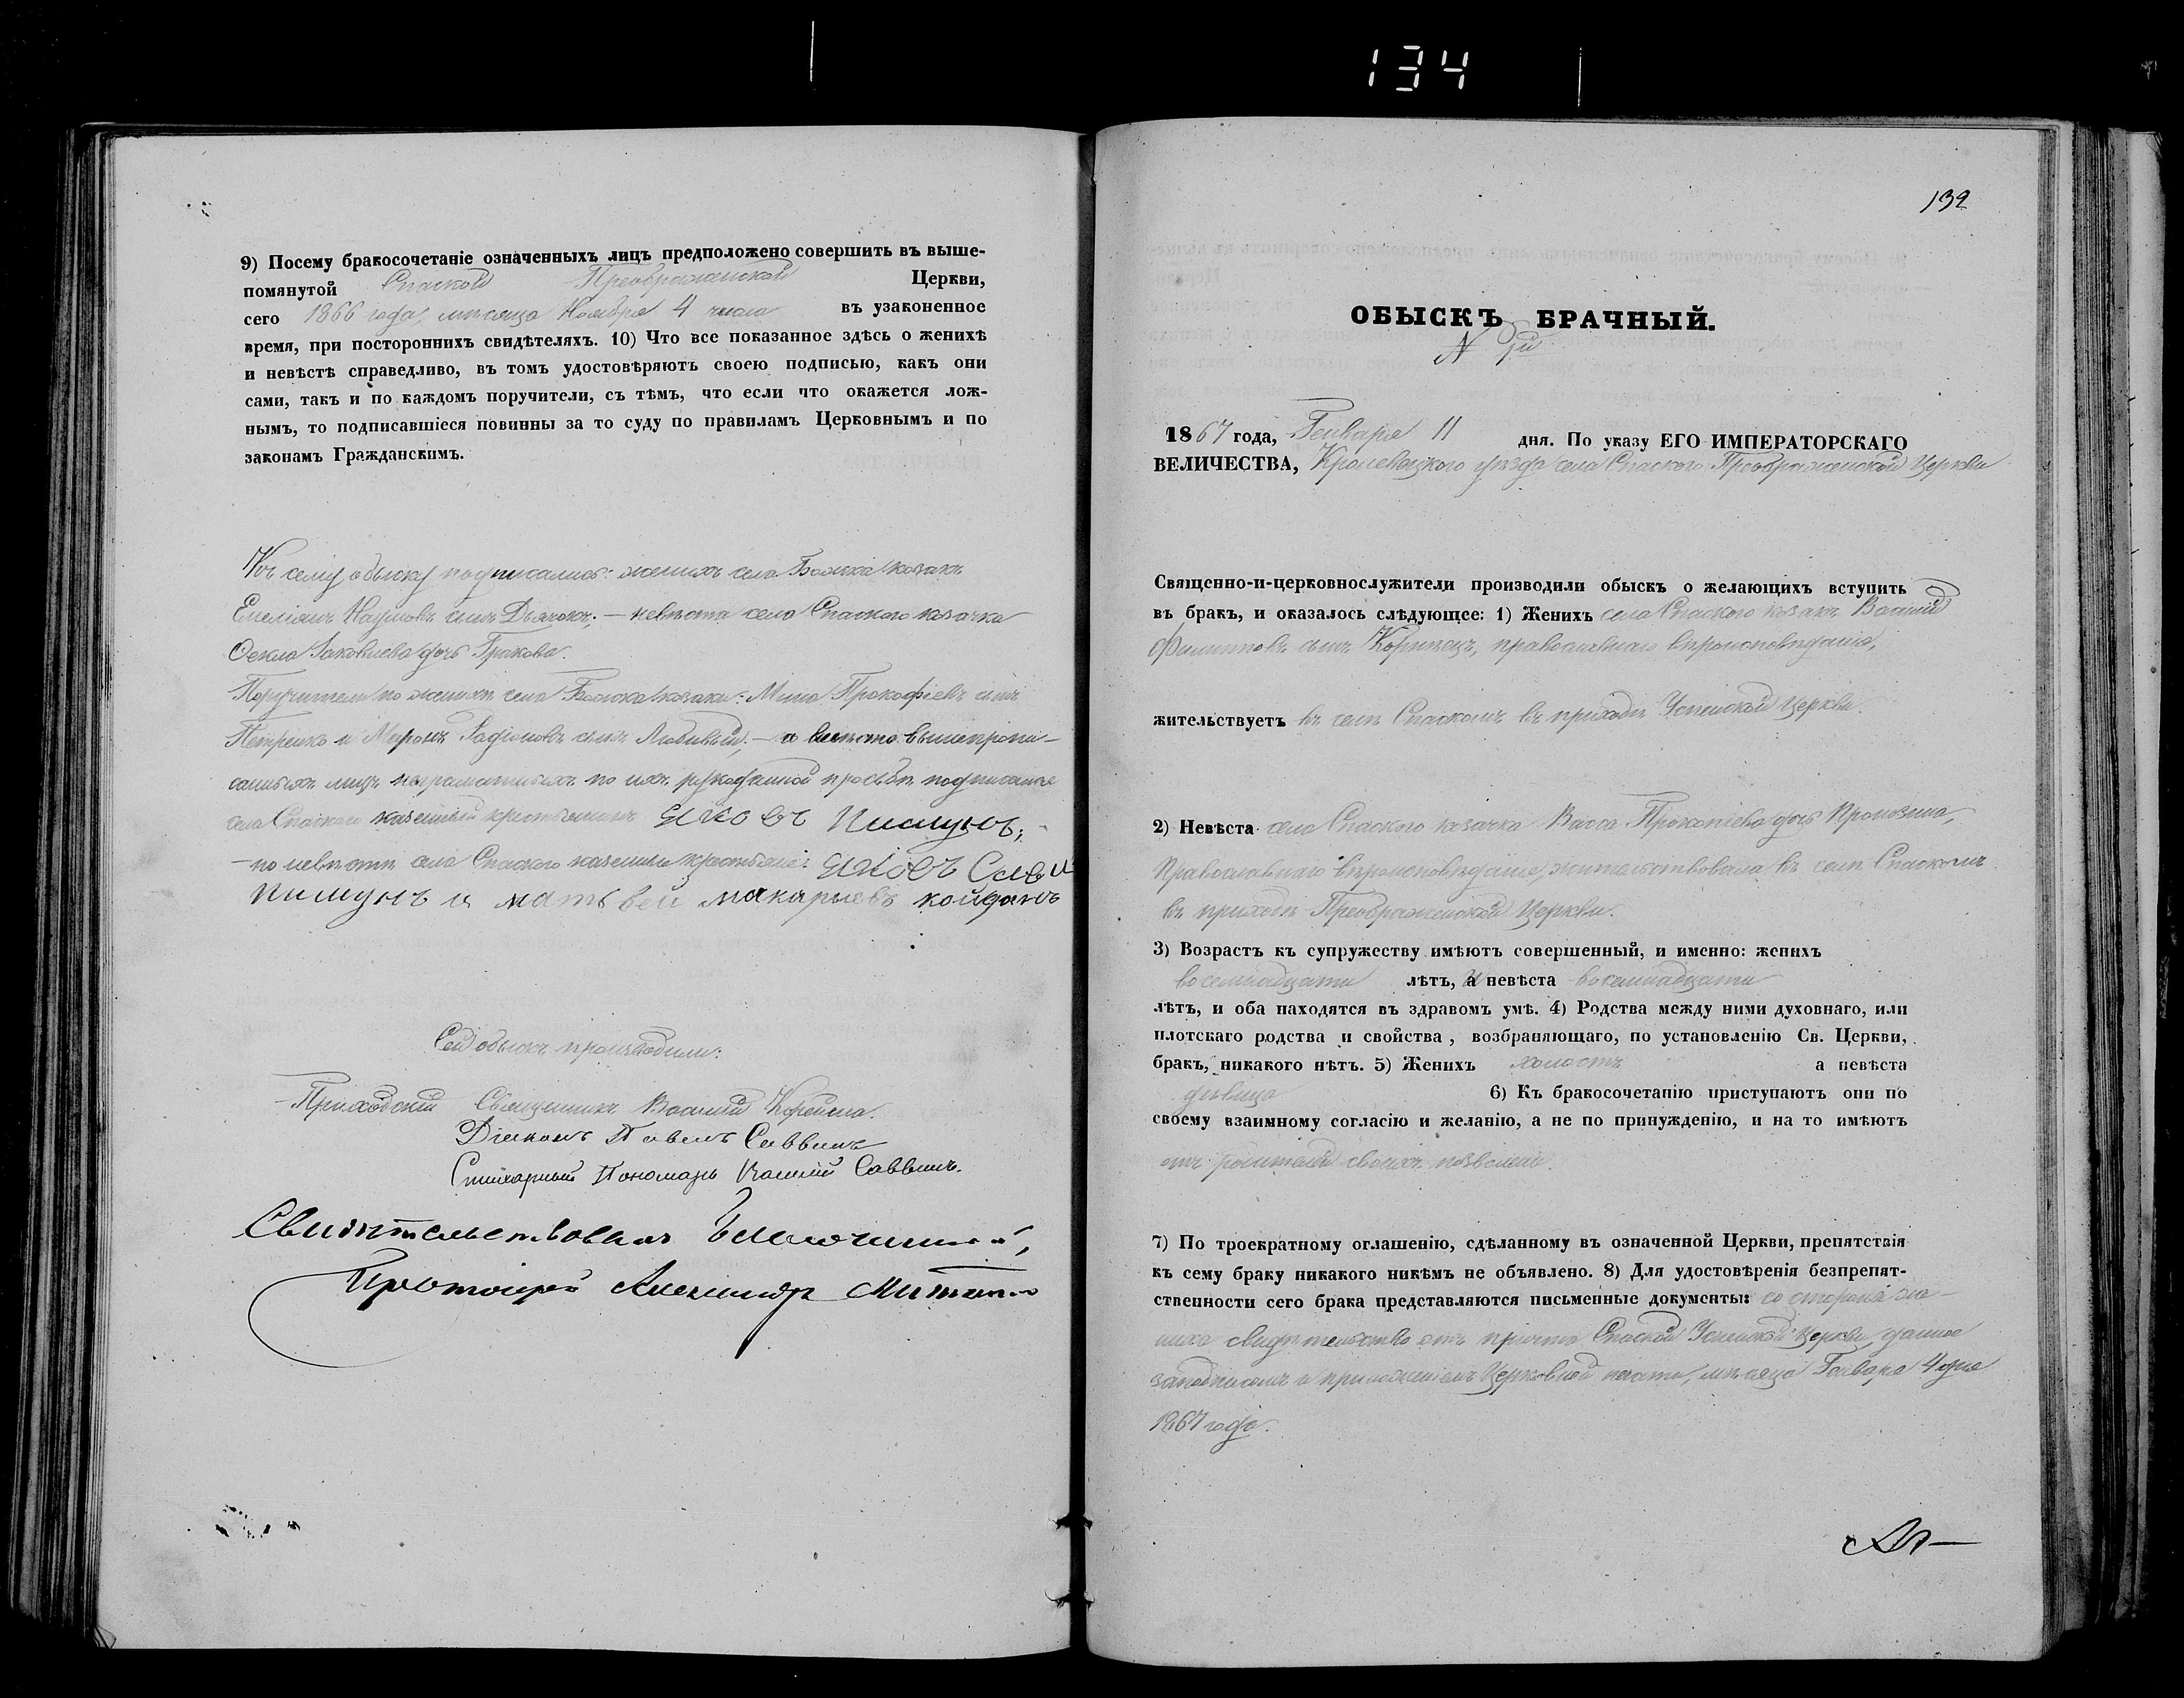 134
9) Посему бракосочетаніе означенныхъ лицъ предположено совершить въ выше-
помянутой Спаской Преображенской Церкви,
сего 1866 года, мѣсяца Ноября 4 числа въ узаконенное
время, при постороннихъ свидѣтеляхъ. 10) Что все показанное здѣсь о женихѣ
и невѣстѣ справедливо, въ томъ удостовѣряютъ своею подписью, какъ они
сами, такъ и по каждомъ поручители, съ тѣмъ, что если что окажется лож-
нымъ, то подписавшіеся повинны за то суду по правиламъ Церковнымъ и по
законамъ Гражданскимъ.
Къ сему обыску подписались: женихъ села козакъ
Емеліанъ Наумовъ сынъ Дьячокъ; — невѣста села Спаского козачка
Ѳекла Іаковлева дочь Гракова.
Поручители по женихѣ села козаки: Мина Прокофіевъ сынъ
Петренко и Миронъ Радіоновъ сынъ — а вмѣсто вышепропи-
санныхъ лицъ неграмотныхъ по ихъ рукоданной прозьбѣ подписался
села Спаского казенный крестьянинъ Яковъ Пискунъ;
— по невѣстѣ села Спаского казенные крестьяне: Яковъ
Пискунъ и матвей макарьевъ койданъ
Сей обыскъ производили:
Приходскій Священникъ Василій
Діаконъ Павелъ Саввинъ
Стихарный Пономарь Василій Саввинъ.
Свидѣтельствовалъ Благочинный,
Протоіерей Александръ
132
ОБЫСКЪ БРАЧНЫЙ.
N
1867 года, Генваря 11 дня. По указу ЕГО ИМПЕРАТОРСКАГО
ВЕЛИЧЕСТВА, Кролевецкого уѣзда села Спаского Преображенской Церкви
Священно-и-церковнослужители производили обыскъ о желающихъ вступить
въ бракъ, и оказалось слѣдующее: 1) Женихъ села Спаского козакъ Василій
Филиповъ сынъ православнаго вѣроисповѣданія,
жительствуетъ въ селѣ Спаскомъ въ приходѣ Успенской Церкви.
2) Невѣста села Спаского козачка Васса Прокопіева дочь
Православнаго вѣроисповѣданія, жительствовала въ селѣ Спаскомъ
въ приходѣ Преображенской Церкви.
3) Возрастъ къ супружеству имѣютъ совершенный, и именно: женихъ
восемнадцати лѣтъ, а невѣста восемнадцати
лѣтъ, и оба находятся въ здравомъ умѣ. 4) Родства между ними духовнаго, или
плотскаго родства и свойства, возбраняющаго, по установленію Св. Церкви,
бракъ, никакого нѣтъ. 5) Женихъ холостъ а невѣста
дѣвица 6) Къ бракосочетанію приступаютъ они по
своему взаимному согласію и желанію, а не по принужденію, и на то имѣютъ
отъ родителей своихъ позволеніе.
7) По троекратному оглашенію, сдѣланному въ означенной Церкви, препятствія
къ сему браку никакого никѣмъ не объявлено. 8) Для удостовѣренія безпрепят-
ственности сего брака представляются письменные документы: со стороны же-
ниха свидѣтельство отъ причта Спаской Успенской Церкви, данное
за подписомъ и приложеніемъ Церковной печати, мѣсяца Генваря 4 дня
1867 года.